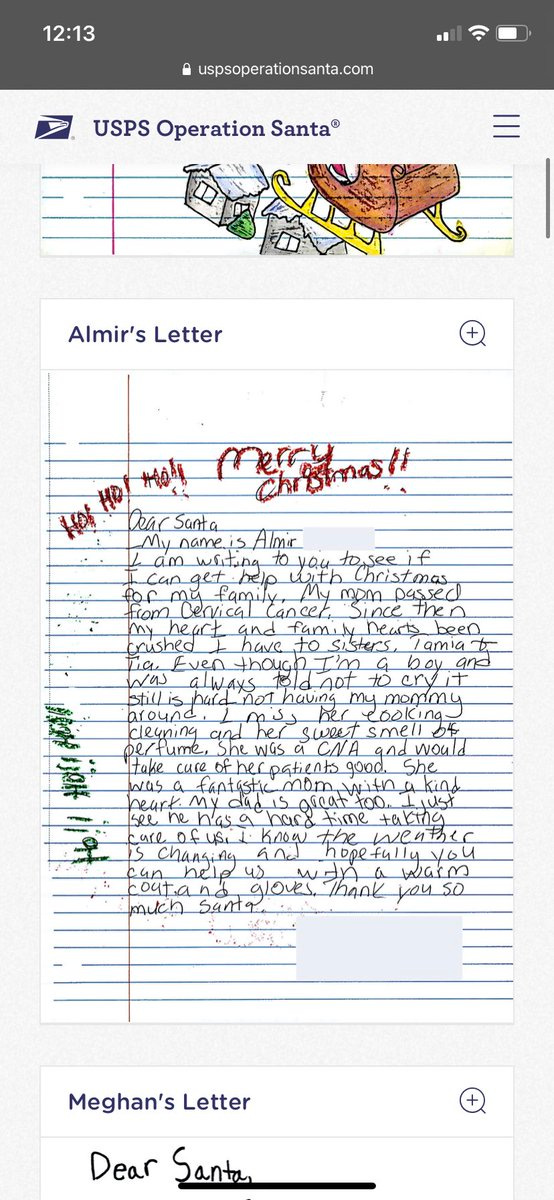 12:13
uspsoperationsanta.com
USPS Operation Santa®
Almir's Letter
Merry
Christmas!!
Ho! Ho! Ho!!
Dear Santa
My name is Almir
I am writing to you to see if
I can get help with Christmas
for my family. My mom passed
from Cervical Cancer. Since then
my heart and family hearts been
crushed I have to sisters. Tamia &
Tia. Even though I'm a boy and
was always told not to cry it
still is hard not having my mommy
around. I miss her cooking
cleaning and her sweet smell of
perfume. She was a CNA and would
take care of her patients good. She
was a fantastic mom, with a kind
heart. My dad is great too. I just
see he has a hard time taking
care of us. I know the weather
is changing and hopefully you
can help us with a warm
coat and gloves. Thank you so
much Santa.
Meghan's Letter
Dear Santa,